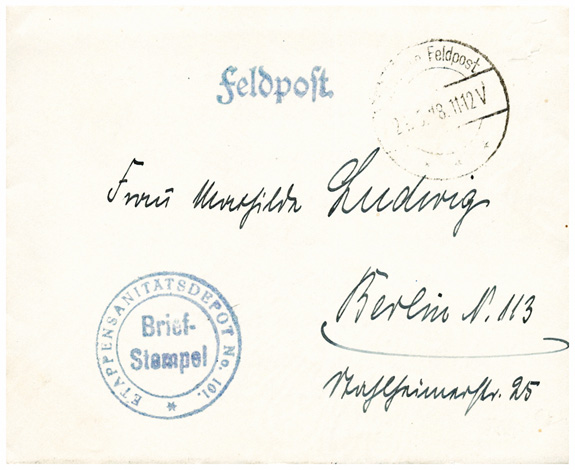 Feldpost.
Feldpost
18.11-12V
Frau Mathilde Ludwig
Berlin N. 113
Stahlheimerstr. 25
ETAPPENSANITÄTSDEPOT No. 101.
Brief-
Stempel